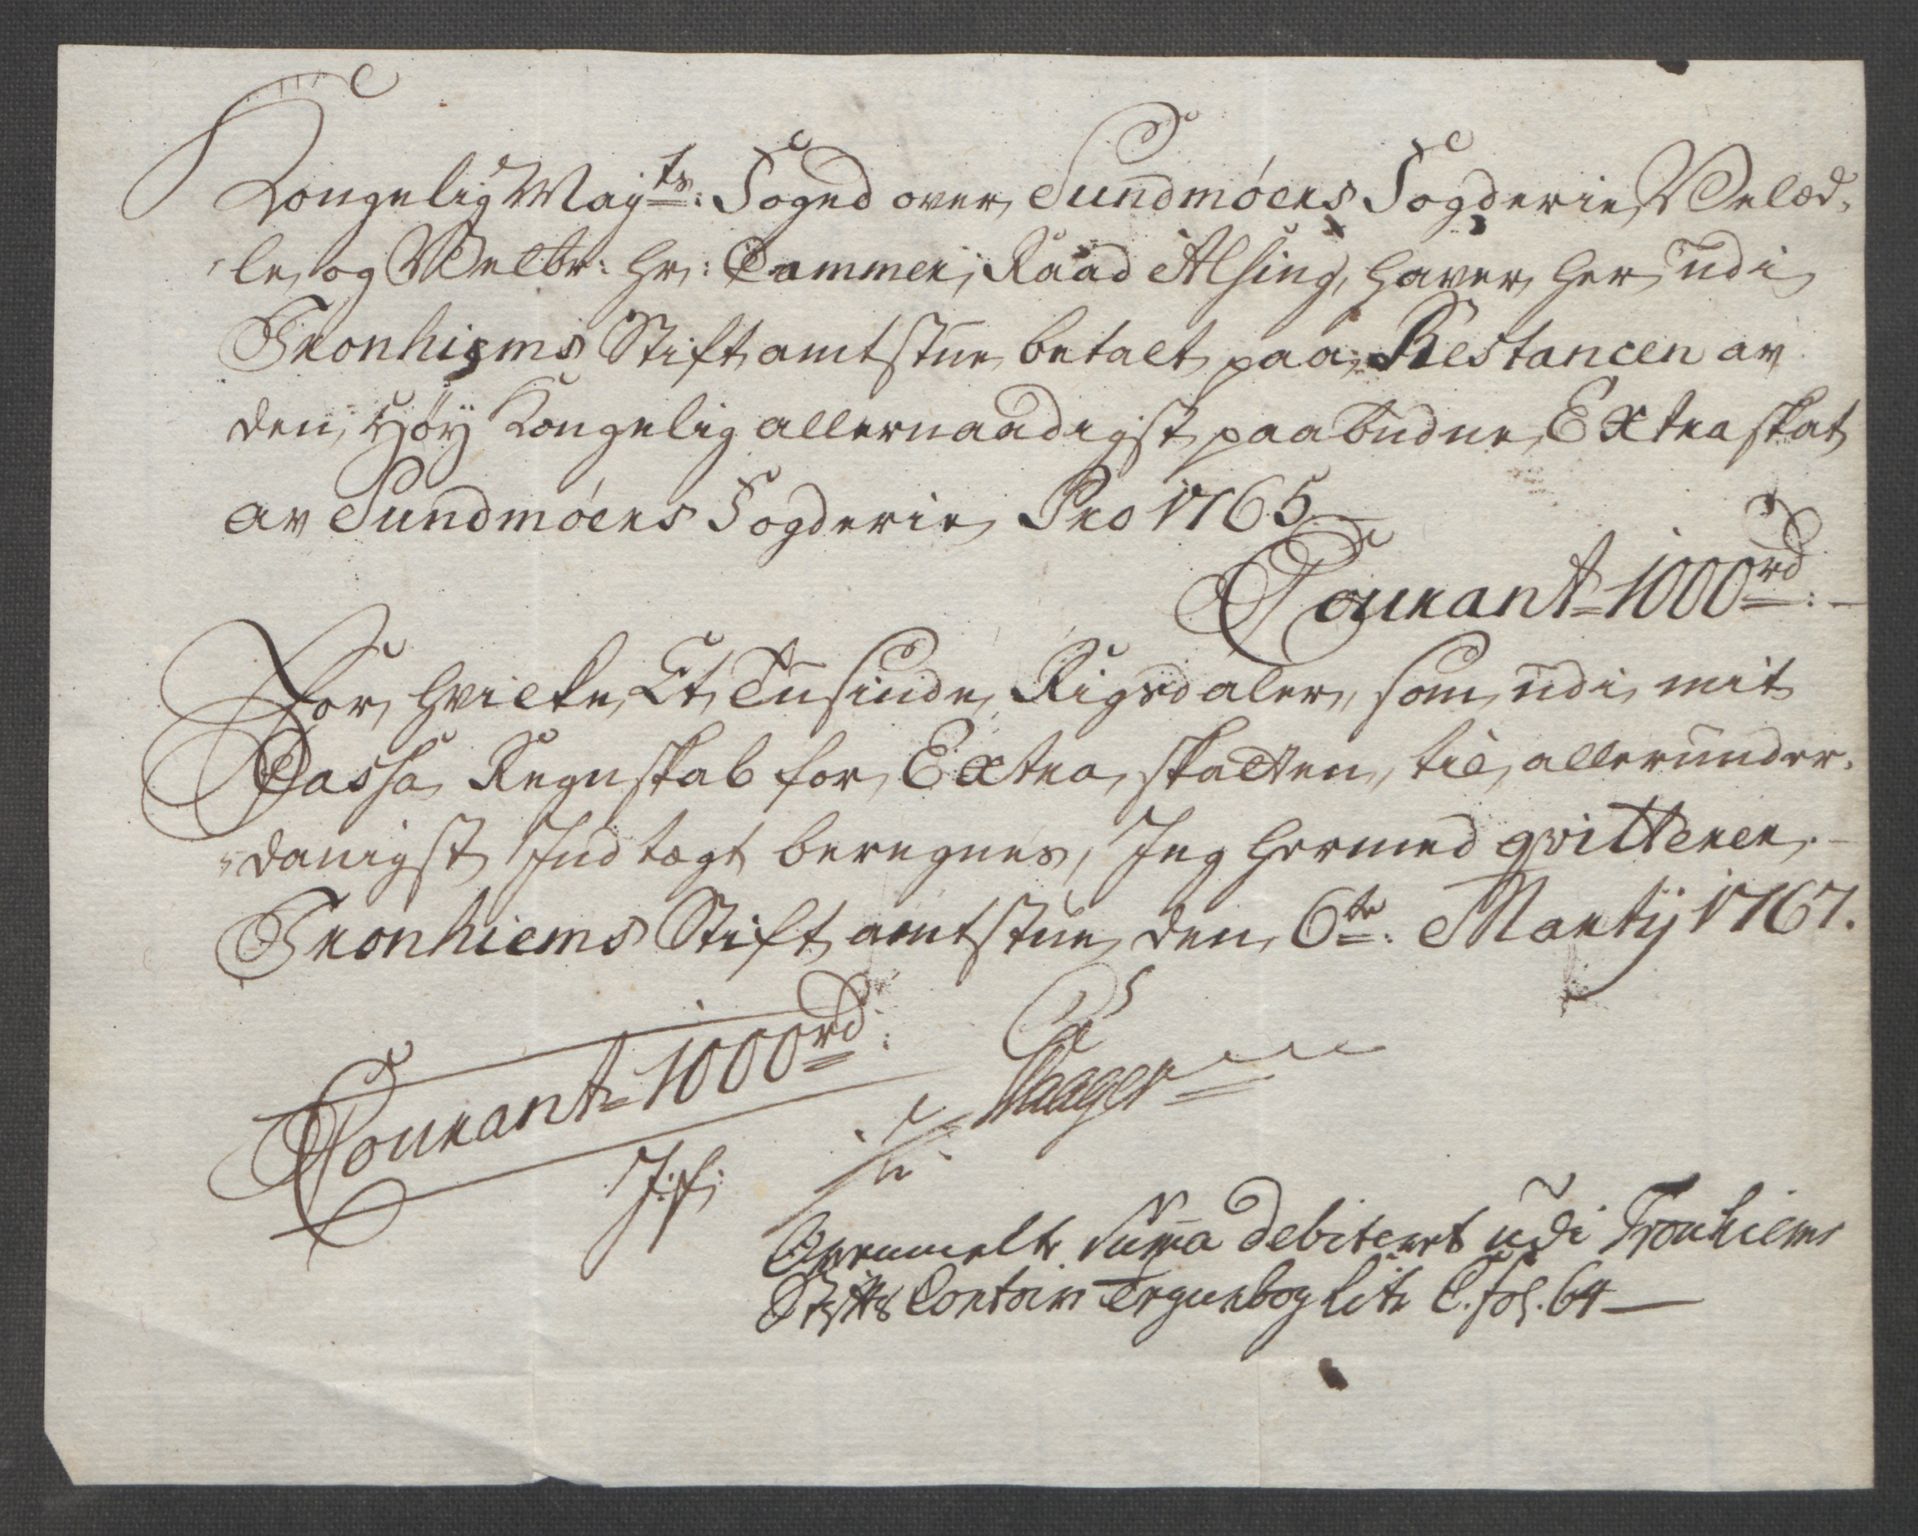 Kongelig Mayts: Foged over Sundmøers Fogderie Velæd-
le og Velbr: Hr: Cammer Raad Alsing, haver her udi
Tronhiems Stiftamtstue betalt paa Restancen av
den Høy Kongelig allernaadigst paabudne Extraskat
av Sundmøers Fogderie Pro 1765
Courant 1000rd:
For hvilke Et Tusinde Rigsdaler, som udi mit
Cassa Regnskab for Extra skatten, til allerunder-
danigst Indtægt beregnes, Jeg hermed qvitterer.
Tronhiems Stiftamtstue den 6te: Martij 1767.
Courant 1000rd:
Ovenmelte Summa debiteret udi Tronhiems
Stifts Contoirs Tegnebog Litr C. fol. 64